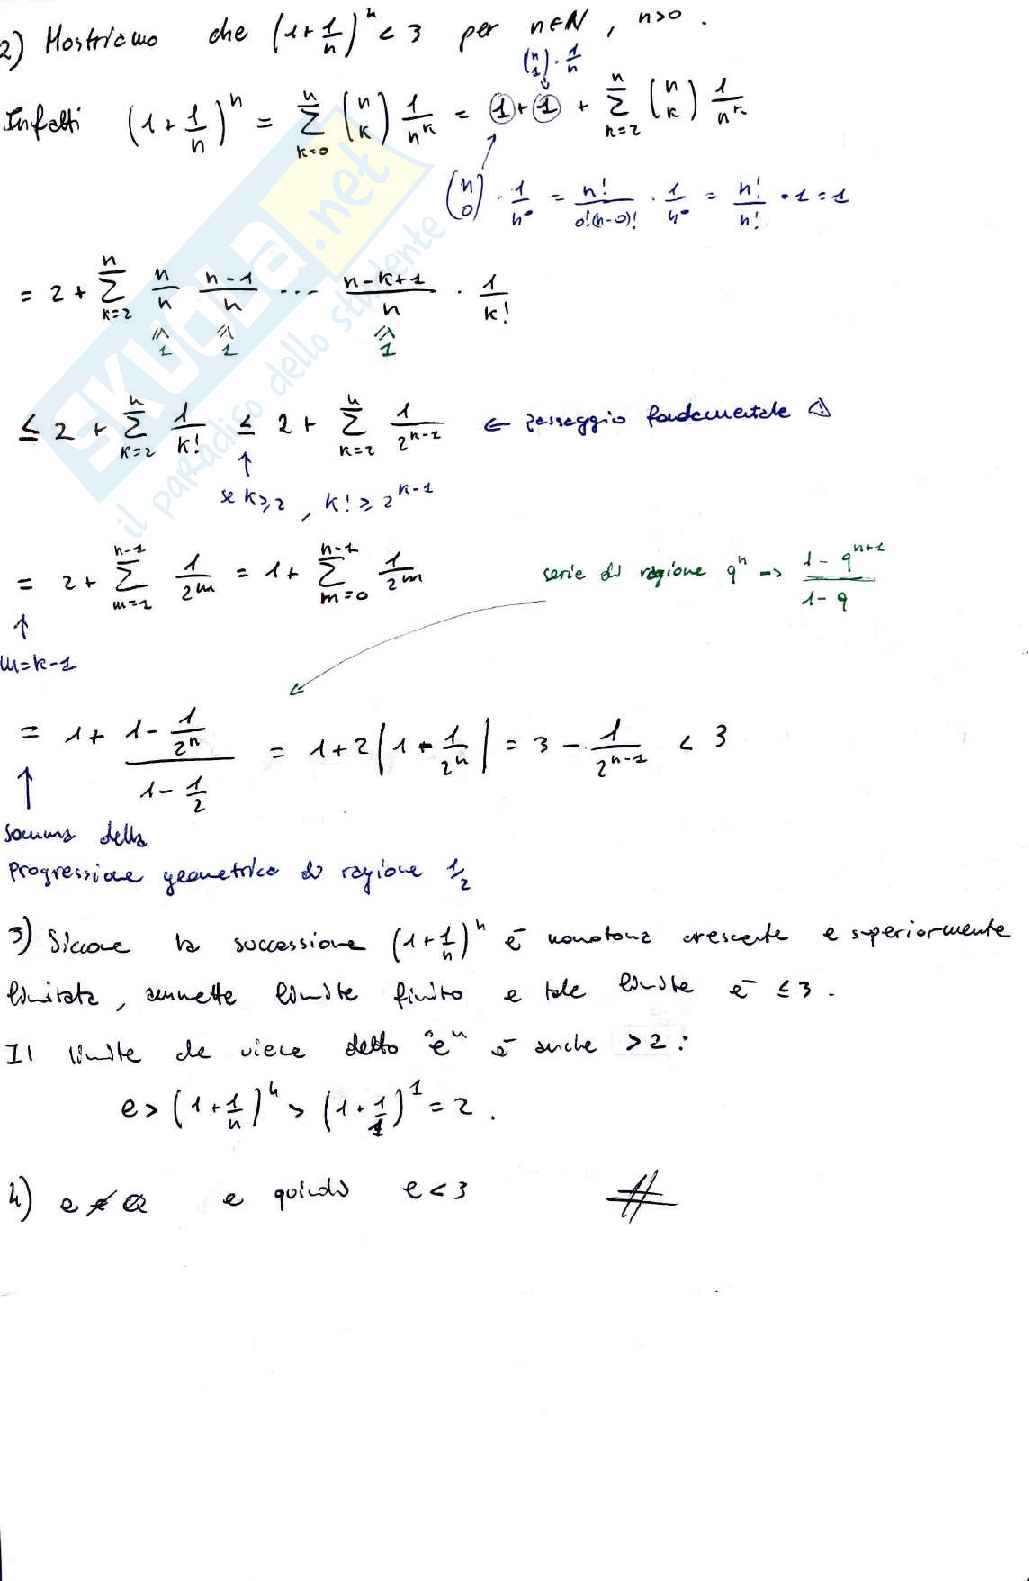 2) Mostriamo che (1+1/n)^n < 3 per n∈N, n>0.
(n 1)·1/n
Infatti (1+1/n)^n = Σ_{k=0}^{n} (n k) 1/n^k = 1+1 + Σ_{k=2}^{n} (n k) 1/n^k
(n 0)·1/n^0 = n!/0!(n-0)! · 1/n^0 = n!/n! ·1=1
= 2 + Σ_{k=2}^{n} n/n n-1/n ... n-k+1/n · 1/k!
≤ 1 ≤ 1 ≤ 1
≤ 2 + Σ_{k=2}^{n} 1/k! ≤ 2 + Σ_{k=2}^{n} 1/2^{k-1} ← passaggio fondamentale
↑
se k≥2, k! ≥ 2^{k-1}
= 2 + Σ_{m=1}^{n-1} 1/2^m = 1+ Σ_{m=0}^{n-1} 1/2^m serie di ragione q^n => 1-q^{n+1}/1-q
↑
m=k-1
= 1+ (1-1/2^n)/(1-1/2) = 1+2(1+1/2^n) = 3 - 1/2^{n-1} < 3
↑
Somma della
progressione geometrica di ragione 1/2
3) Siccome la successione (1+1/n)^n è monotona crescente e superiormente
limitata, ammette limite finito e tale limite è ≤3.
Il limite che viene detto "e" è anche >2:
e > (1+1/n)^n > (1+1/1)^1 = 2.
4) e ∉ Q e quindi e<3 #
SKUOLA.net
il paradiso dello studente